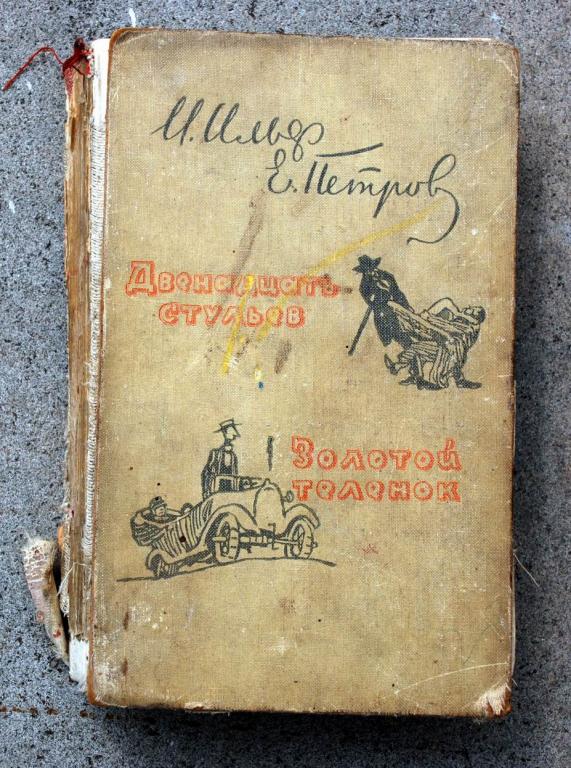 И. Ильф
Е. Петров
Двенадцать
стульев
Золотой
теленок